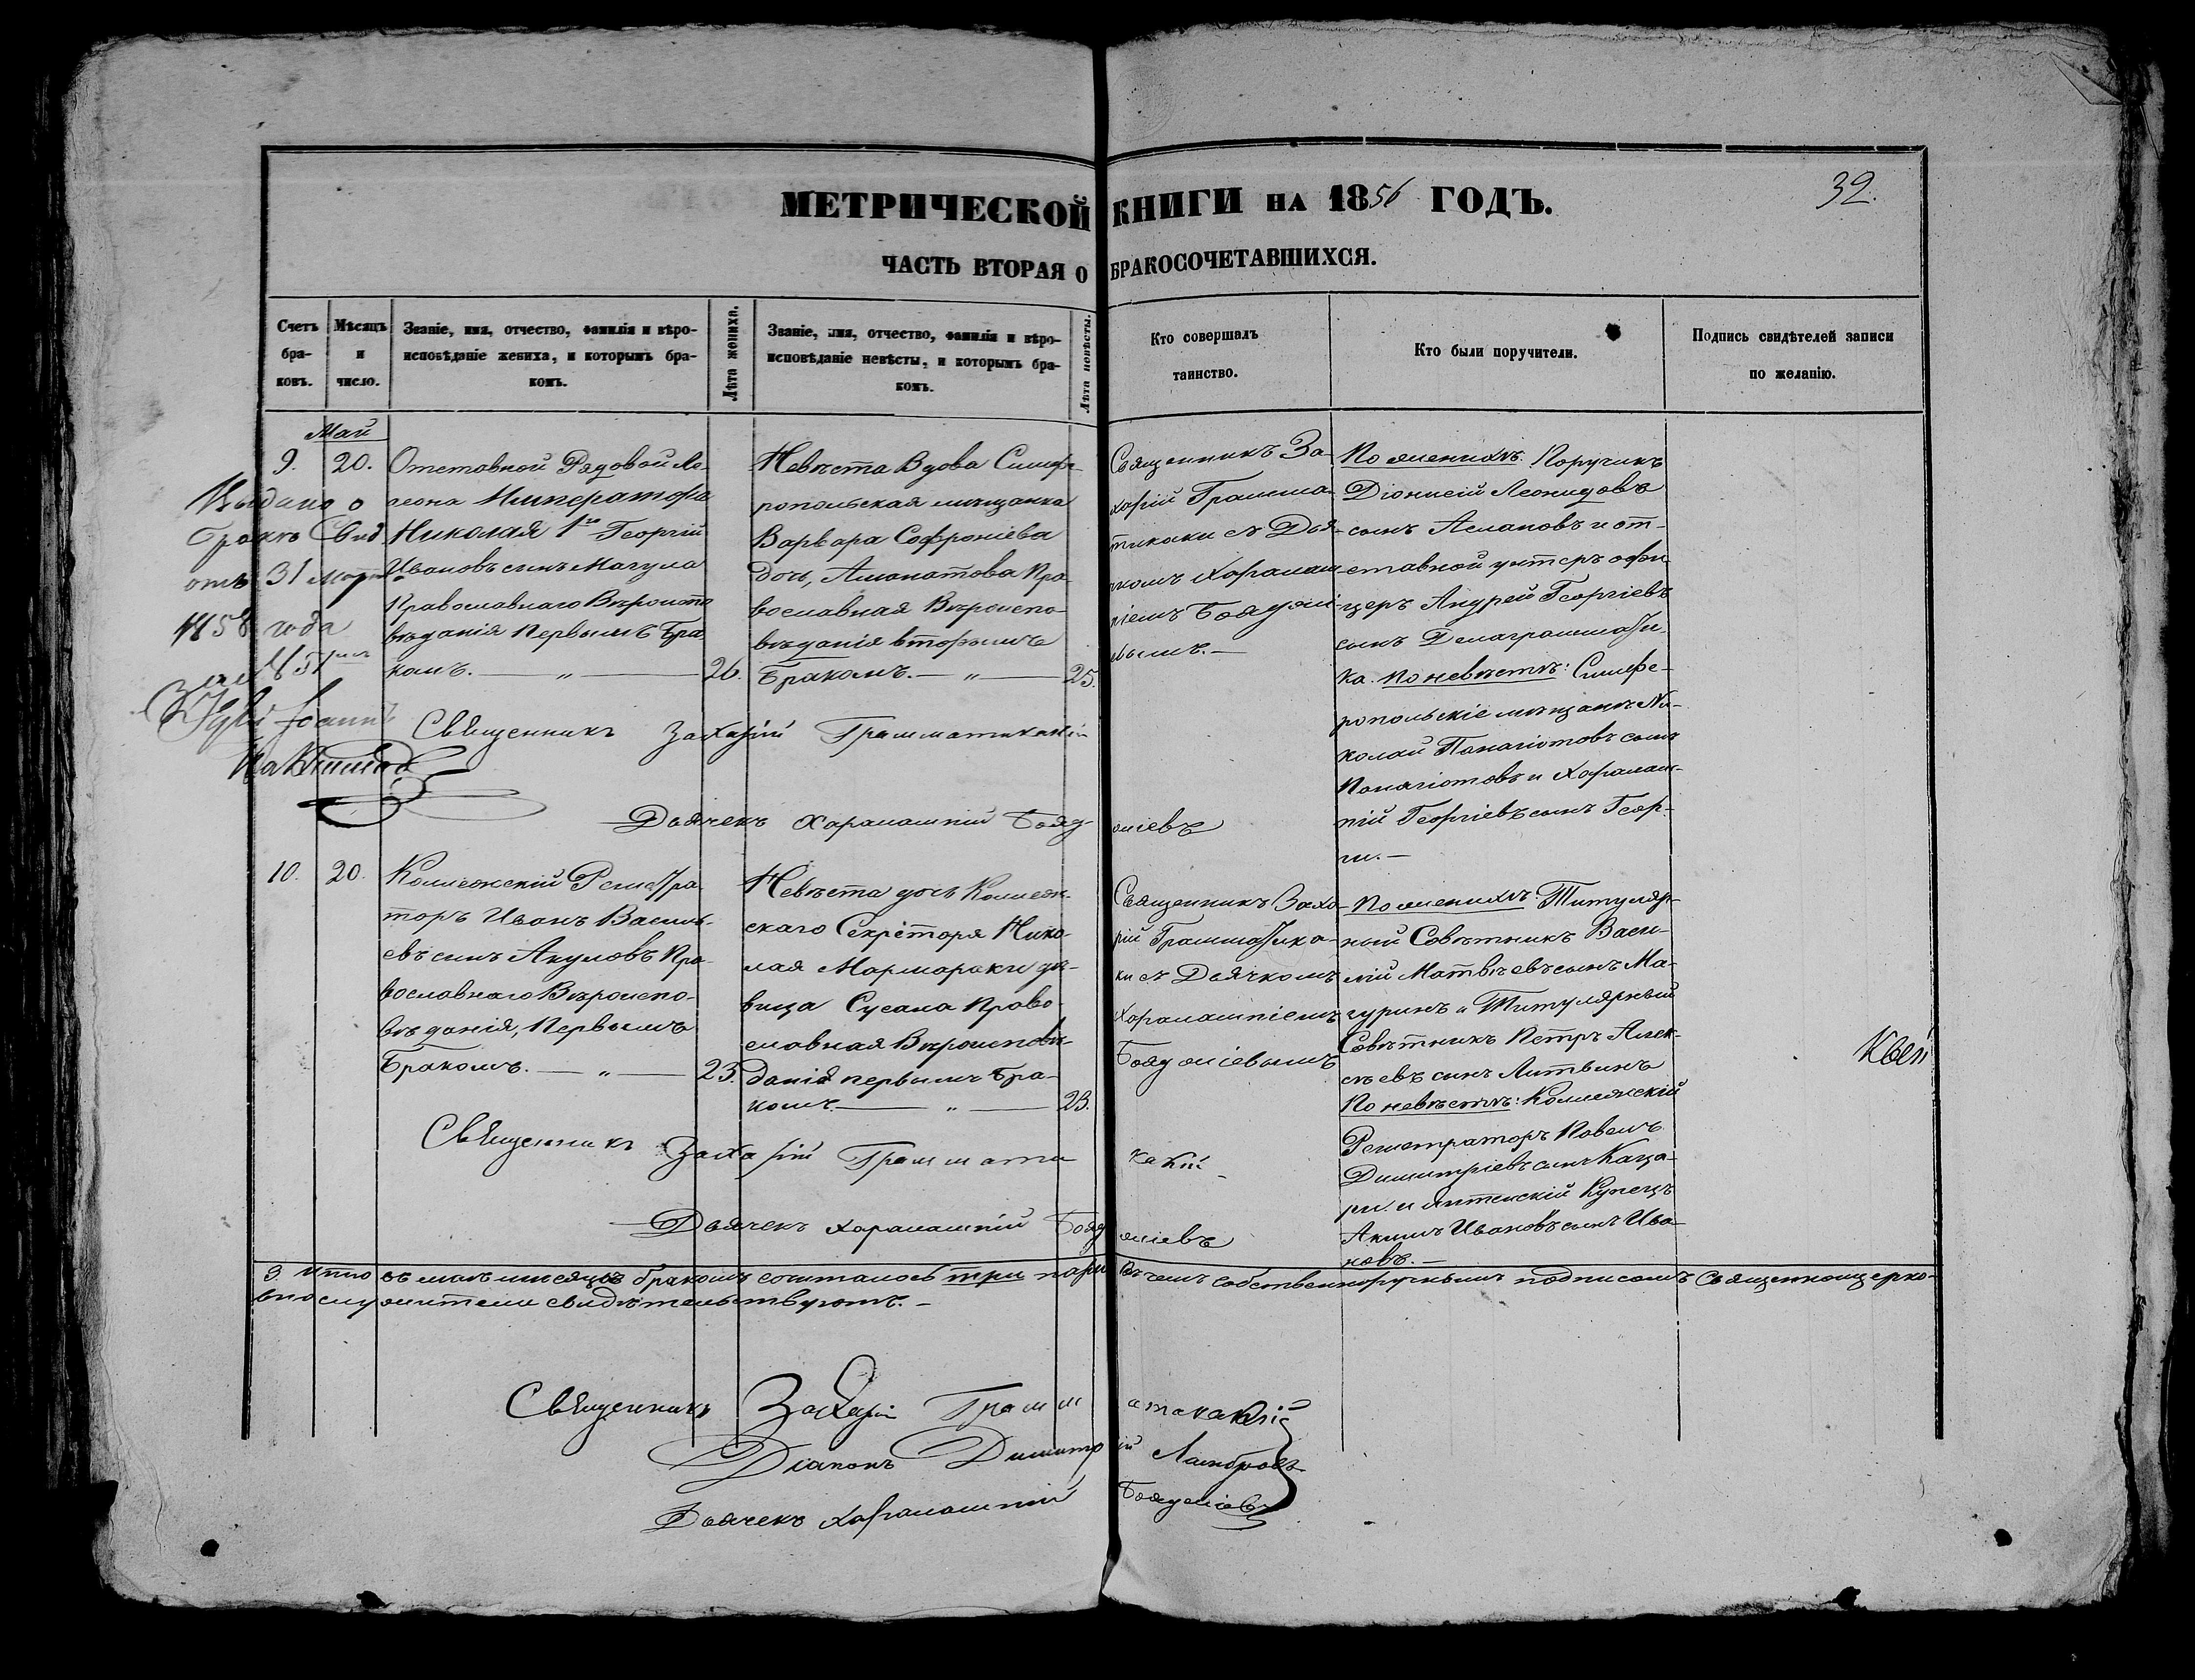 МЕТРИЧЕСКОЙ КНИГИ НА 1856 ГОДЪ.
32.
ЧАСТЬ ВТОРАЯ О БРАКОСОЧЕТАВШИХСЯ.
Счетъ
бра-
ковъ.
Мѣсяцъ
и
число.
Званіе, имя, отчество, фамилія и вѣро-
исповѣданіе жениха, и которымъ бра-
комъ.
Лѣта жениха.
Званіе, имя, отчество, фамилія и вѣро-
исповѣданіе невѣсты, и которымъ бра-
комъ.
Лѣта невѣсты.
Кто совершалъ
таинство.
Кто были поручители.
Подпись свидѣтелей записи
по желанію.
Май
9.
20.
Отставной Рядовой Ле-
геона Императора
Николая 1го Георгій
Ивановъ сынъ Магула
Православнаго Вѣроиспо
вѣданія Первымъ Бра
комъ. — „ —
26.
Невѣста Вдова Симфе-
ропольская мѣщанка
Варвара Софроніева
дочь, Аманатова Пра
вославная Вѣроиспо-
вѣданія вторымъ
Бракомъ. — „ —
25.
Священникъ За-
харій Грамма-
тикаки съ Дья-
чкомъ Харалам
піемъ Бояджі-
евымъ. —
По женихѣ: Поручикъ
Діонисій Леонидовъ
сынъ Аслановъ и от-
ставной унтеръ офи
церъ Андрей Георгіевъ
сынъ Делаграммати
ка. По невѣстѣ: Симфе-
ропольскіе мѣщане Ни-
колай Панагіотовъ сынъ
Панагіотовъ и Харалам-
пій Георгіевъ сынъ Геор-
ги. —
Выдано о
бракѣ Свид
отъ 31 Марта
1858 года
за №
Священникъ Захарій Грамматикакій
Дьячекъ Харалампій Бояджіевъ
10.
20.
Коллежскій Регистра
торъ Иванъ Василь-
евъ сынъ Акуловъ Пра-
вославнаго Вѣроиспо-
вѣданія, Первымъ
Бракомъ. — „ —
23.
Невѣста дочь Коллеж-
скаго Секрѣтаря Нико-
лая Мармараки дѣ-
вица Сусана Право-
славная Вѣроисповѣ-
данія первымъ Бра-
комъ. — „ —
23.
Священникъ Заха-
рій Граммати ка-
ки съ Дьячкомъ
Харалампіемъ
Бояджіевымъ
По женихѣ: Титуляр-
ный Совѣтникъ Васи-
лій Матвѣевъ сынъ Ма-
гуринъ и Титулярный
Совѣтникъ Петръ Алек-
сѣевъ сынъ Литвинъ
По невѣстѣ: Коллежскій
Регистраторъ Павелъ
Димитріевъ сынъ Каца-
ри. и Ялтенскій Купецъ
Акимъ Ивановъ сынъ Ива-
новъ. —
Священникъ Захарій Грамматикакій
Дьячекъ Харалампій Бояджіевъ
3. Итго въ маѣ мѣсяцѣ бракомъ сочталось три пары Въ чемъ собственноручнымъ подписомъ Священноцерко-
внослужители свидѣтельствуютъ. —
Священникъ Захарій Грамматикакій
Діаконъ Димитрій Ламбровъ
Дьячекъ Харалампій Бояджіевъ